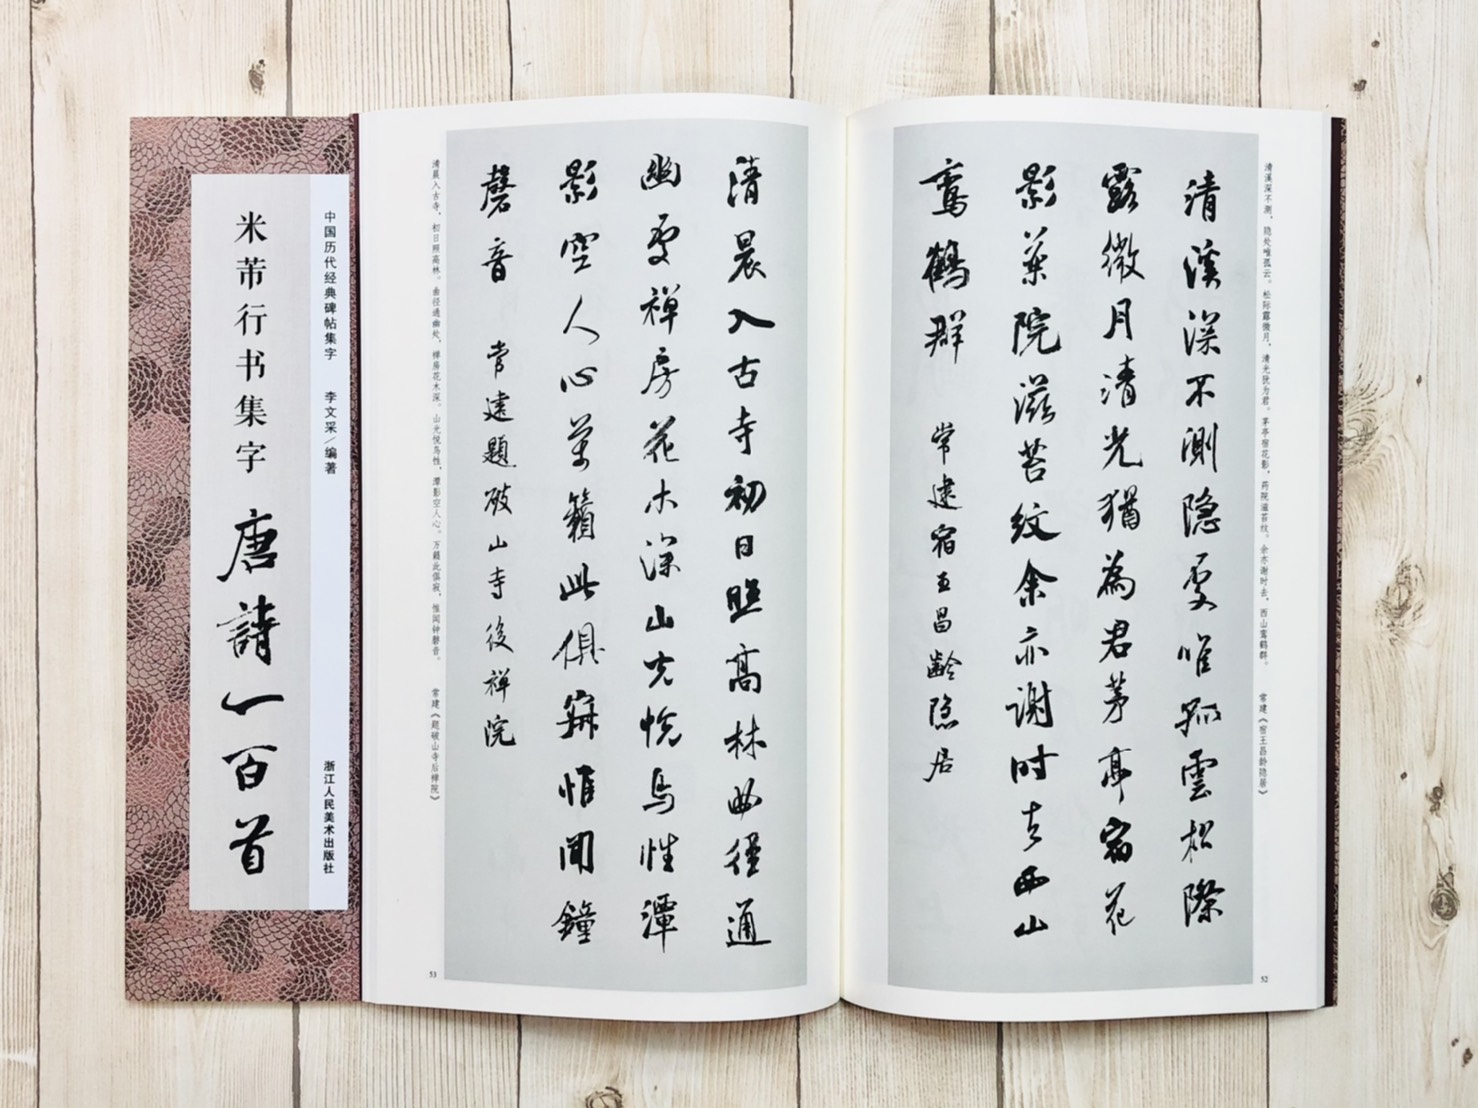 清溪深不测，隐处唯孤云。松际露微月，清光犹为君。茅亭宿花影，药院滋苔纹。余亦谢时去，西山鸾鹤群。 常建《宿王昌龄隐居》
清溪深不測隐處唯孤雲松際
露微月清光猶為君茅亭宿花
影藥院滋苔紋余亦謝时去西山
鸞鶴群 常建宿王昌齡隐居
52
清晨入古寺初日照高林曲徑通
幽處禪房花木深山光悅鳥性潭
影空人心萬籟此俱寂惟聞鐘
磬音 常建題破山寺後禪院
清晨入古寺，初日照高林。曲径通幽处，禅房花木深。山光悦鸟性，潭影空人心。万籁此俱寂，惟闻钟磬音。 常建《题破山寺后禅院》
53
中国历代经典碑帖集字 李文采/编著 浙江人民美术出版社
米芾行书集字 唐詩一百首